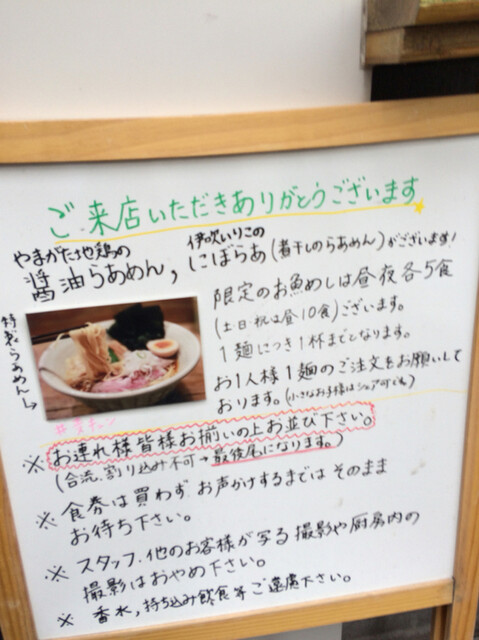 ご来店いただきありがとうございます
やまがた地鶏の
醤油らあめん,
伊吹いりこの
にぼらあ(煮干しのらあめん)がございます!
特製らあめん→
限定のお魚めしは昼夜各5食
(土・日・祝は昼10食)ございます。
1麺につき1杯までとなります。
お1人様1麺のご注文をお願いして
おります。(小さなお子様はシェア可です)
※ お連れ様皆様お揃いの上お並び下さい。
(合流、割り込み不可→最後尾になります。)
※ 食券は買わず お声がけするまでは そのまま
お待ち下さい。
※ スタッフ、他のお客様が写る 撮影や厨房内の
撮影はおやめ下さい。
※ 香水,持ち込み飲食等ご遠慮下さい。